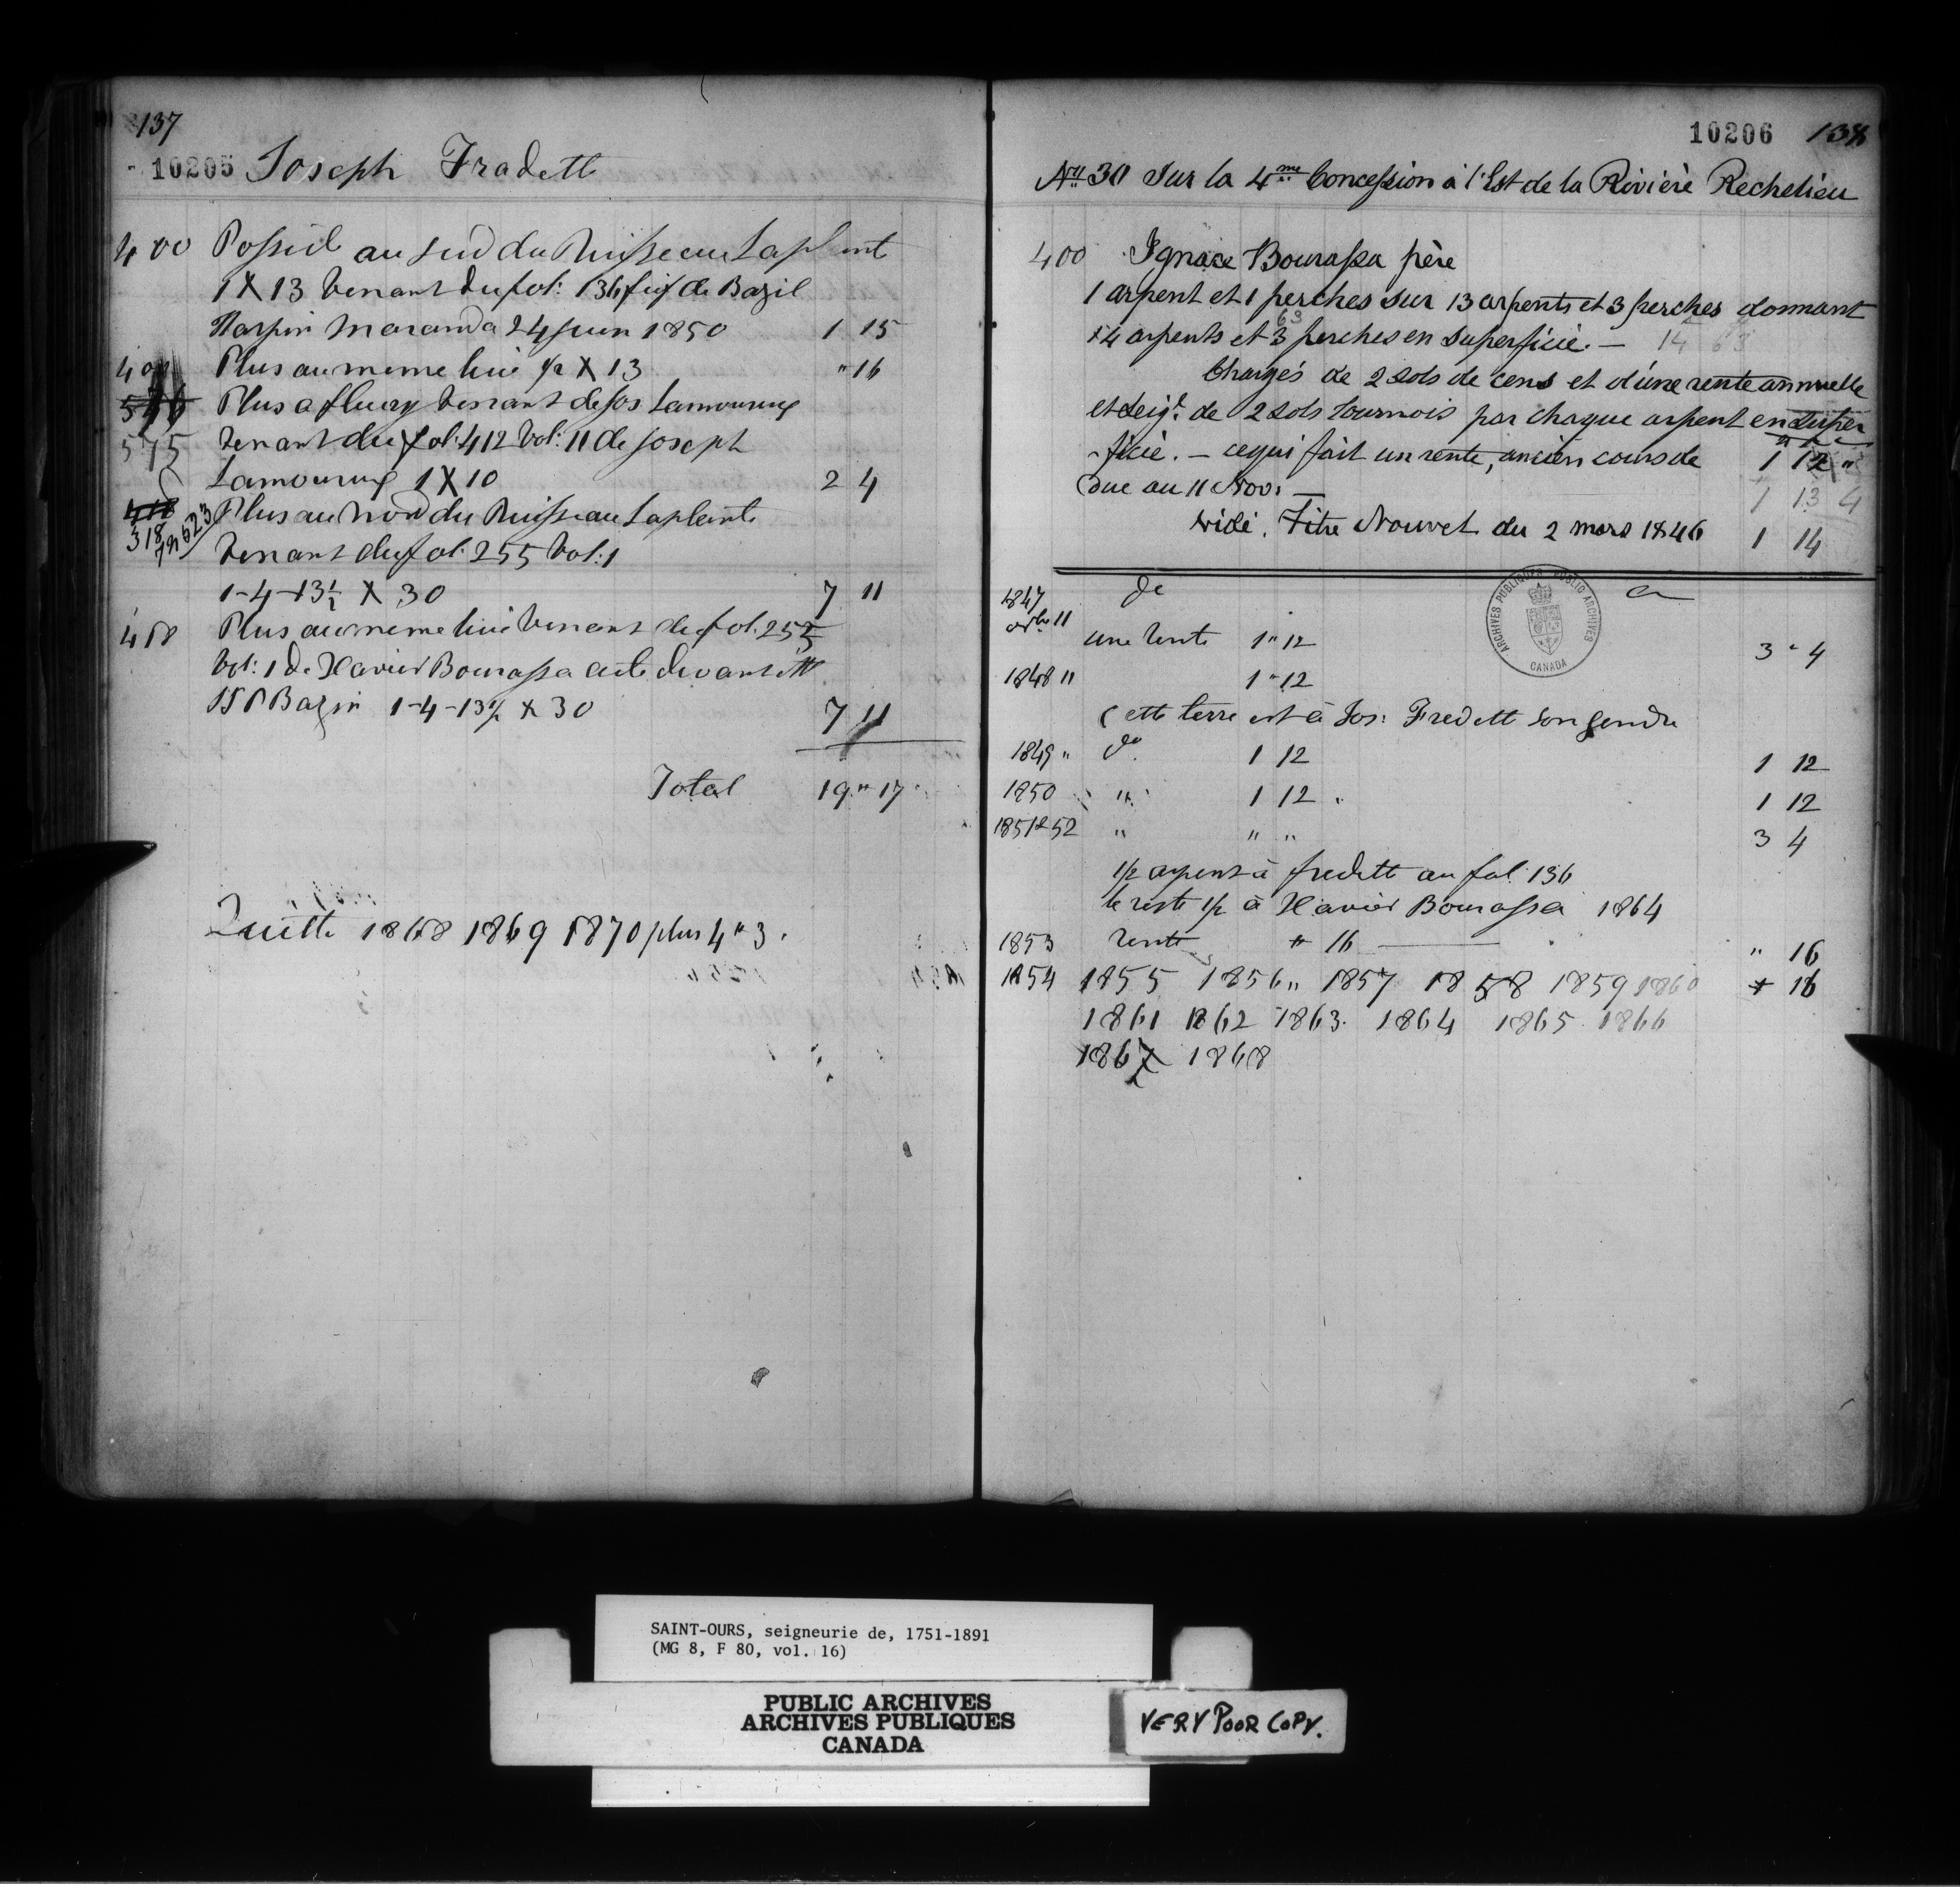 137
10205 Joseph Fradett
400 Possede au sud du Ruisseau Laplant
1 X 13 venant du fol: 136 de Bazil
Harpin Maranda 24 juin 1850 1 15
401 Plus au meme lieu 1/2 X 13 " 16
Plus a fleury venant de Jos Lamoureux
575 venant du fol: 412 Vol: 11 de Joseph
Lamoureux 1 X 10 2 4
418 Plus au Nord du Ruisseau Laplante
318
523
venant du fol: 255 Vol: 1
1-4-13½ X 30 7 11
418 Plus au meme lieu venant du fol. 255
Vol: 1 de Xavier Bourassa acte devant
Bazin 1-4-13½ X 30 7 11
Total 19 " 17
Quitte 1868 1869 1870 plus 4 " 3.
10206 138
No 30 Sur la 4me Concession à l'Est de la Rivière Rechelieu
400 Ignace Bourassa père
1 arpent et 1 perches sur 13 arpents et 3 perches donnant
14 arpents et 3 perches en superficie. — 14 63
63
Chargés de 2 sols de cens et d'une rente annuelle
et seigl. de 2 sols tournois par chaque arpent en super
-ficie. — ce qui fait un rente, ancien cours de 1 12 "
due au 11 Nov: — 1 13 4
vide. Titre Nouvel du 2 mars 1846 1 14
de a
1847
11 une rente 1 " 12 3 " 4
1848 11 1 " 12
Cette terre est à Jos: Fredett son gendre
1849 " do 1 12 1 12
1850 " 1 12 1 12
1851 & 52 " " " 3 4
1/2 arpent à fredette au fol. 136
le reste 1/2 à Xavier Bourassa 1864
1853 rente " 16 — " 16
1854 1855 1856 " 1857 1858 1859 1860 16
1861 1862 1863. 1864 1865 1866
1867 1868
ARCHIVES PUBLIQUES PUBLIC ARCHIVES
CANADA
SAINT-OURS, seigneurie de, 1751-1891
(MG 8, F 80, vol. 16)
PUBLIC ARCHIVES
ARCHIVES PUBLIQUES
CANADA
VERY POOR COPY.